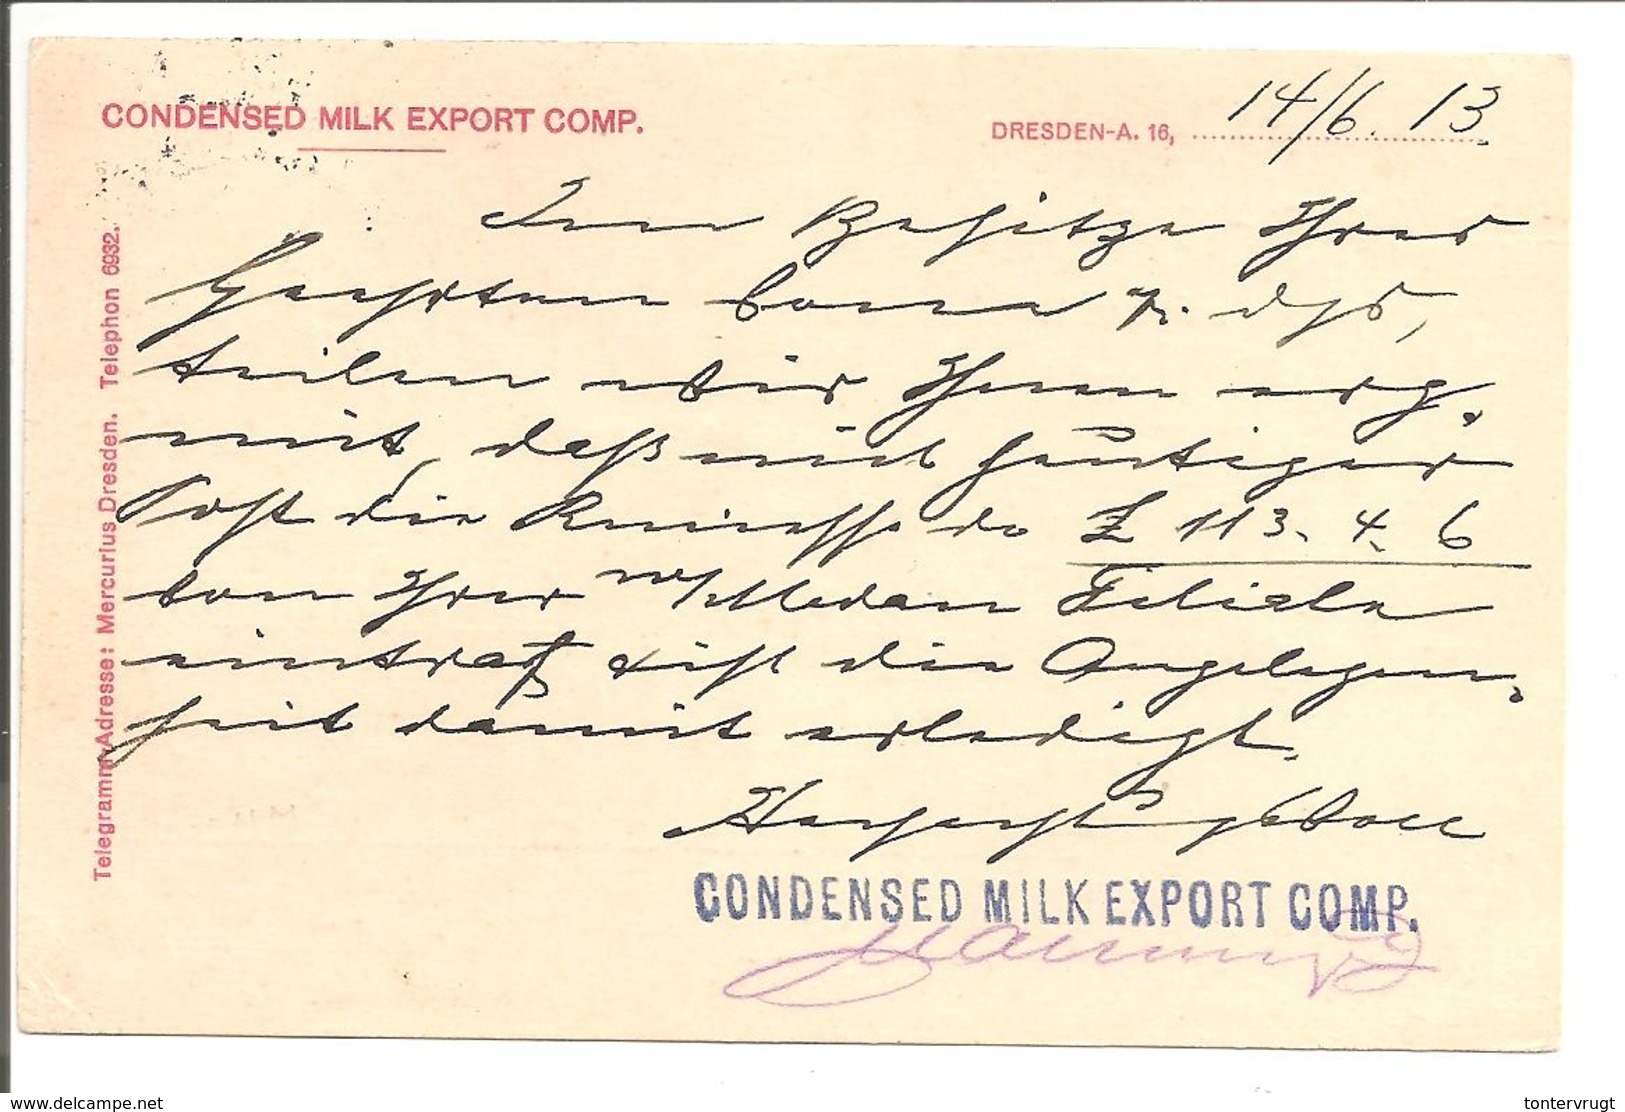 CONDENSED MILK EXPORT COMP.
DRESDEN-A. 16, 14/6. 13
Telegramm-Adresse: Mercurius Dresden. Telephon 6932.
Im Besitze Ihres
Geehrten vom 7. dss,
teilen wir Ihnen erg.
mit, daß mit heutiger
Post die Rimesse do £ 113.4.6
von Ihrer Medan Filiale
eintraf & ist die Angelegen-
heit damit erledigt.
Hochachtungsvoll
CONDENSED MILK EXPORT COMP.
www.delcampe.net
tontervrugt